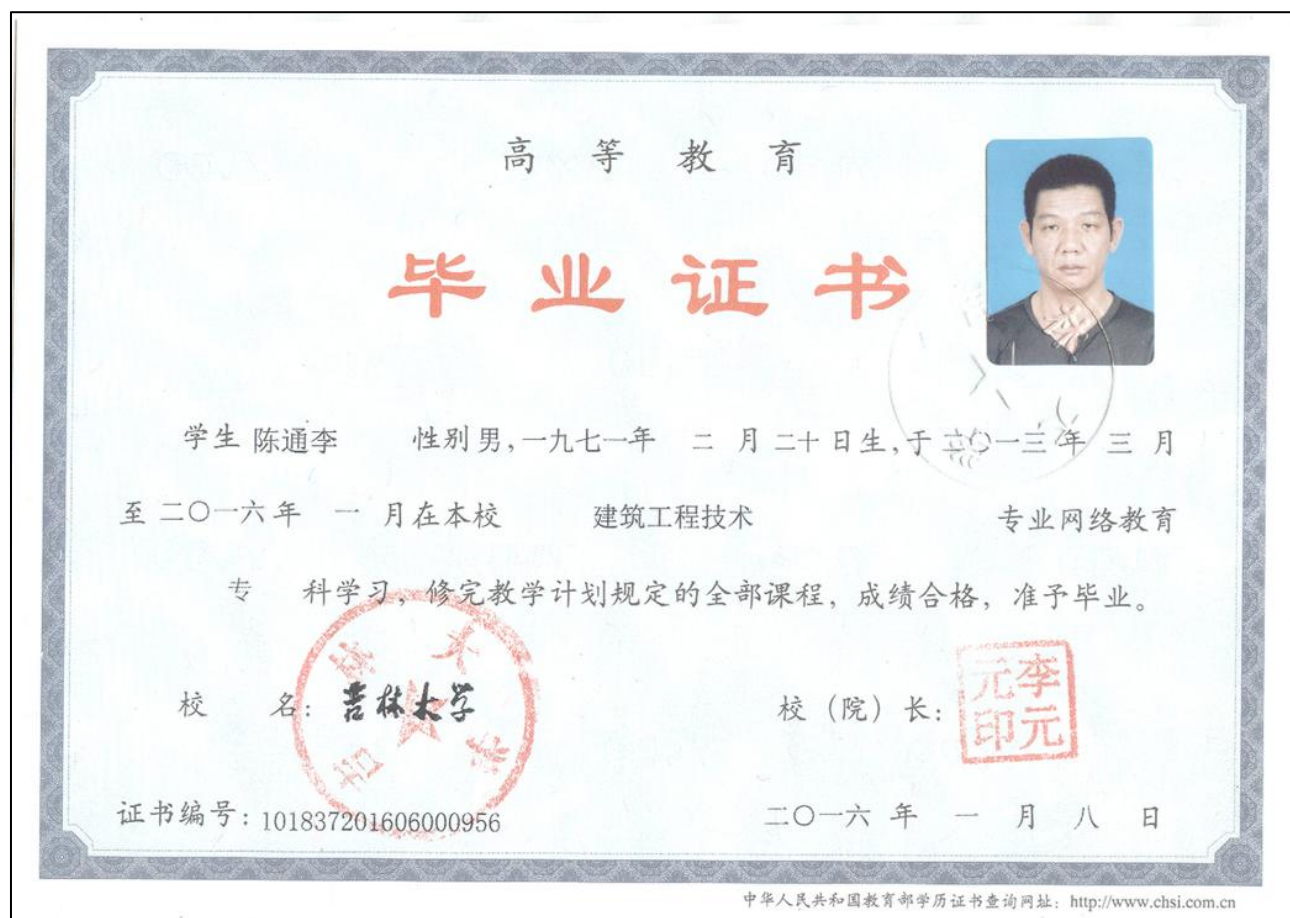 高等教育
毕业证书
学生 陈通李 性别 男,一九七一年 二 月 二十 日生,于 二〇一三年 三 月
至 二〇一六 年 一 月在本校 建筑工程技术 专业网络教育
专 科学习，修完教学计划规定的全部课程，成绩合格，准予毕业。
校 名：吉林大学
吉林大学
校（院）长：
李元元印
证书编号：101837201606000956
二〇一六 年 一 月 八 日
中华人民共和国教育部学历证书查询网址：http://www.chsi.com.cn